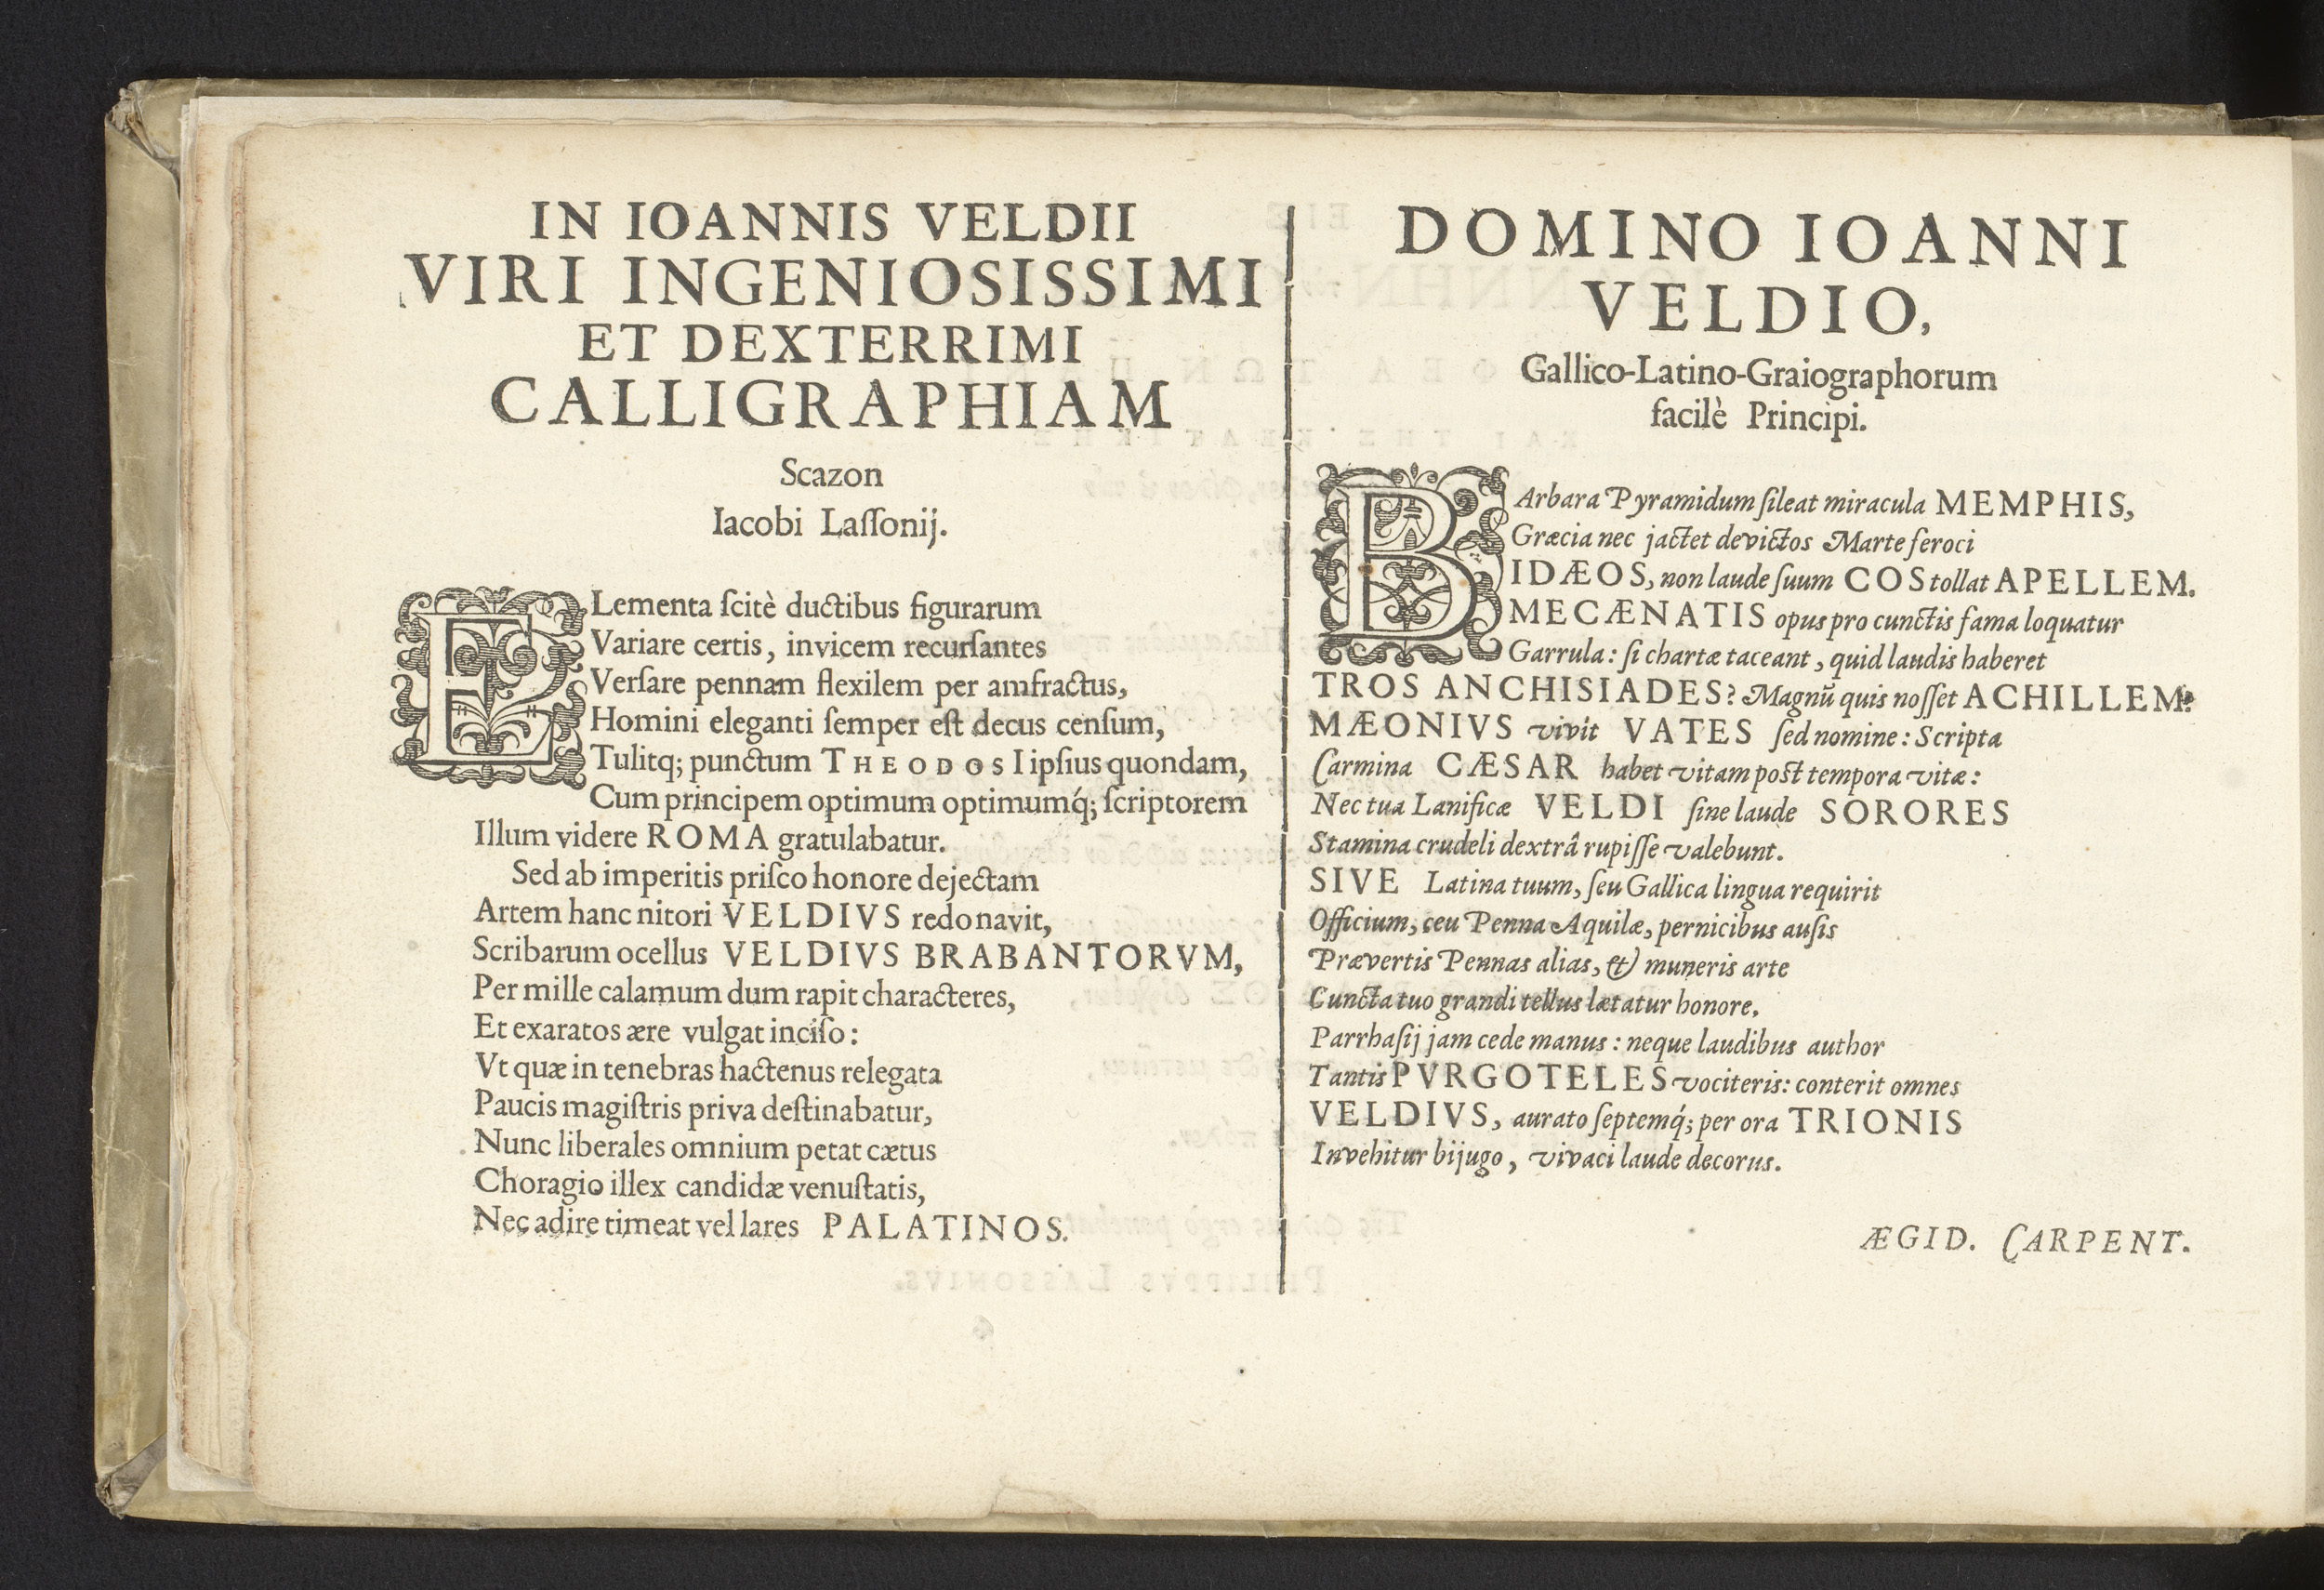 IN IOANNIS VELDII
VIRI INGENIOSISSIMI
ET DEXTERRIMI
CALLIGRAPHIAM
Scazon
Iacobi Laſſonij.
ELementa ſcitè ductibus figurarum
Variare certis, invicem recurſantes
Verſare pennam flexilem per amfractus,
Homini eleganti ſemper eſt decus cenſum,
Tulitq; punctum THEODOSI ipſius quondam,
Cum principem optimum optimumq́; ſcriptorem
Illum videre ROMA gratulabatur.
Sed ab imperitis priſco honore dejectam
Artem hanc nitori VELDIVS redonavit,
Scribarum ocellus VELDIVS BRABANTORVM,
Per mille calamum dum rapit characteres,
Et exaratos ære vulgat inciſo:
Vt quæ in tenebras hactenus relegata
Paucis magiſtris priva deſtinabatur,
Nunc liberales omnium petat cætus
Choragio illex candidæ venuſtatis,
Nec adire timeat vel lares PALATINOS.
DOMINO IOANNI
VELDIO,
Gallico-Latino-Graiographorum
facilè Principi.
BArbara Pyramidum ſileat miracula MEMPHIS,
Græcia nec jactet devictos Marte feroci
IDÆOS, non laude ſuum COS tollat APELLEM.
MECÆNATIS opus pro cunctis fama loquatur
Garrula: ſi chartæ taceant, quid laudis haberet
TROS ANCHISIADES? Magnū quis noſſet ACHILLEM?
MÆONIVS vivit VATES ſed nomine: Scripta
Carmina CÆSAR habet vitam poſt tempora vitæ:
Nec tua Lanificæ VELDI ſine laude SORORES
Stamina crudeli dextrâ rupiſſe valebunt.
SIVE Latina tuum, ſeu Gallica lingua requirit
Officium, ceu Penna Aquilæ, pernicibus auſis
Prævertis Pennas alias, et muneris arte
Cuncta tuo grandi tellus lætatur honore.
Parrhaſij jam cede manus: neque laudibus author
Tantis PVRGOTELES vociteris: conterit omnes
VELDIVS, aurato ſeptemq́; per ora TRIONIS
Invehitur bijugo, vivaci laude decorus.
ÆGID. CARPENT.